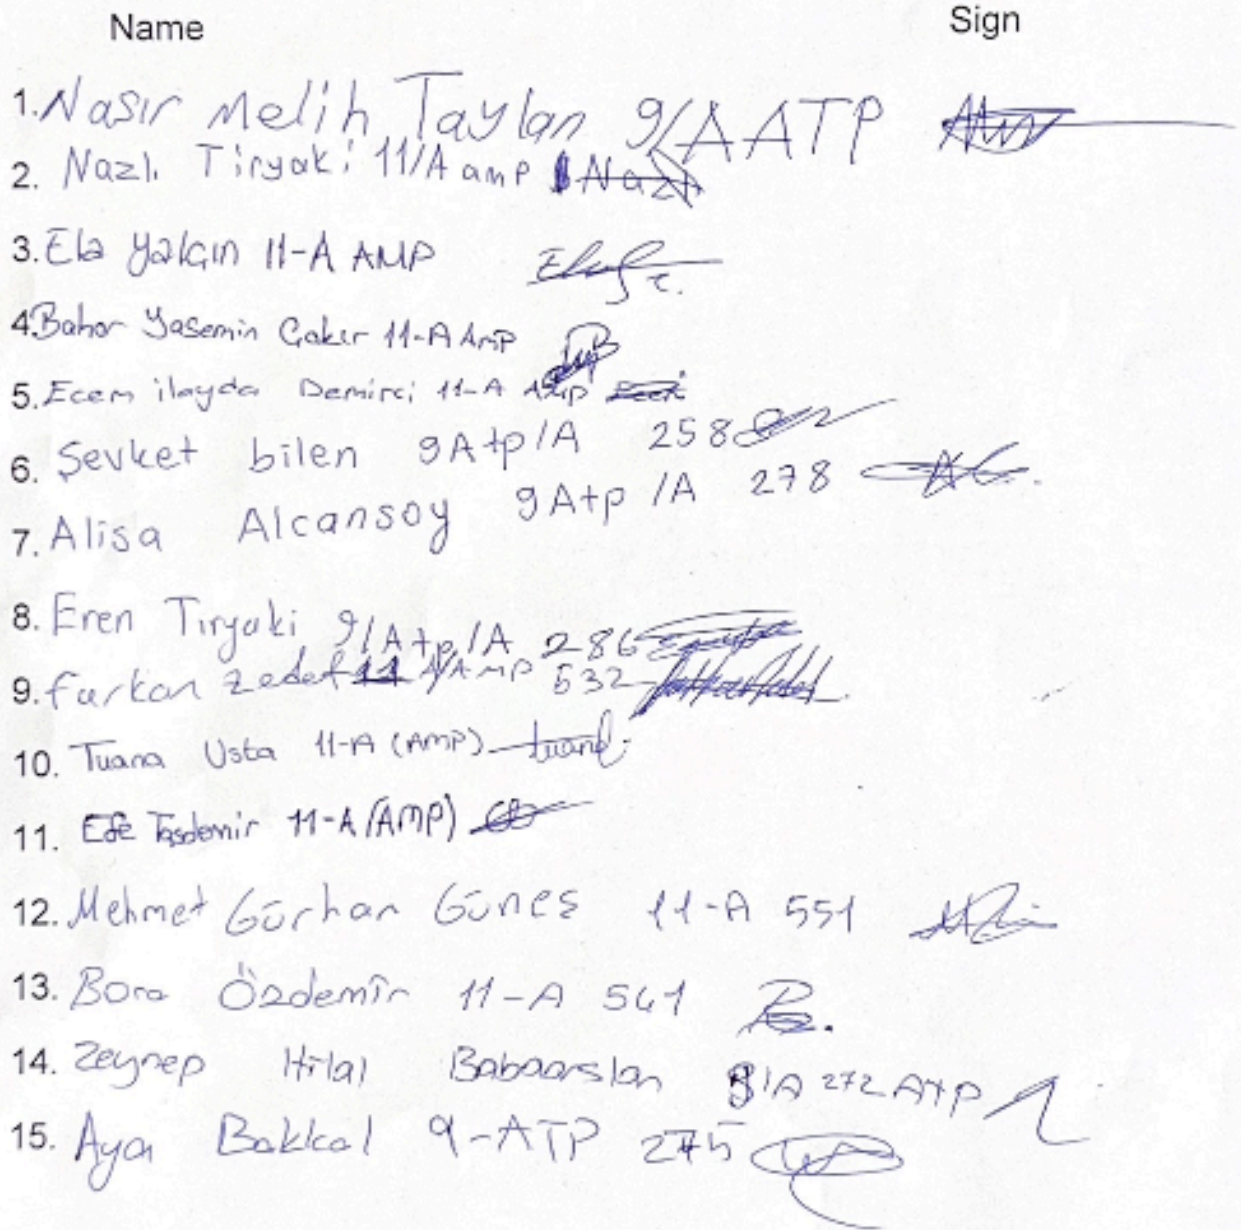 Name Sign
1. Nasır Melih Taylan 9/A ATP
2. Nazlı Tiryaki 11/A amp Nazlı
3. Ela Yalçın 11-A AMP
4. Bahar Yasemin Çakır 11-A AMP
5. Ecem ilayda Demirci 11-A AMP
6. Şevket bilen 9Atp/A 258
7. Alisa Alcansoy 9Atp/A 278
8. Eren Tiryaki 9/Atp/A 286
9. furkan zedef 11 A/AMP 532
10. Tuana Usta 11-A (AMP) tuana
11. Efe Taşdemir 11-A (AMP)
12. Mehmet Gürhan Güneş 11-A 551
13. Bora Özdemir 11-A 541
14. Zeynep Hilal Babaarslan 9/A 272 ATP
15. Aya Bakkal 9-ATP 275